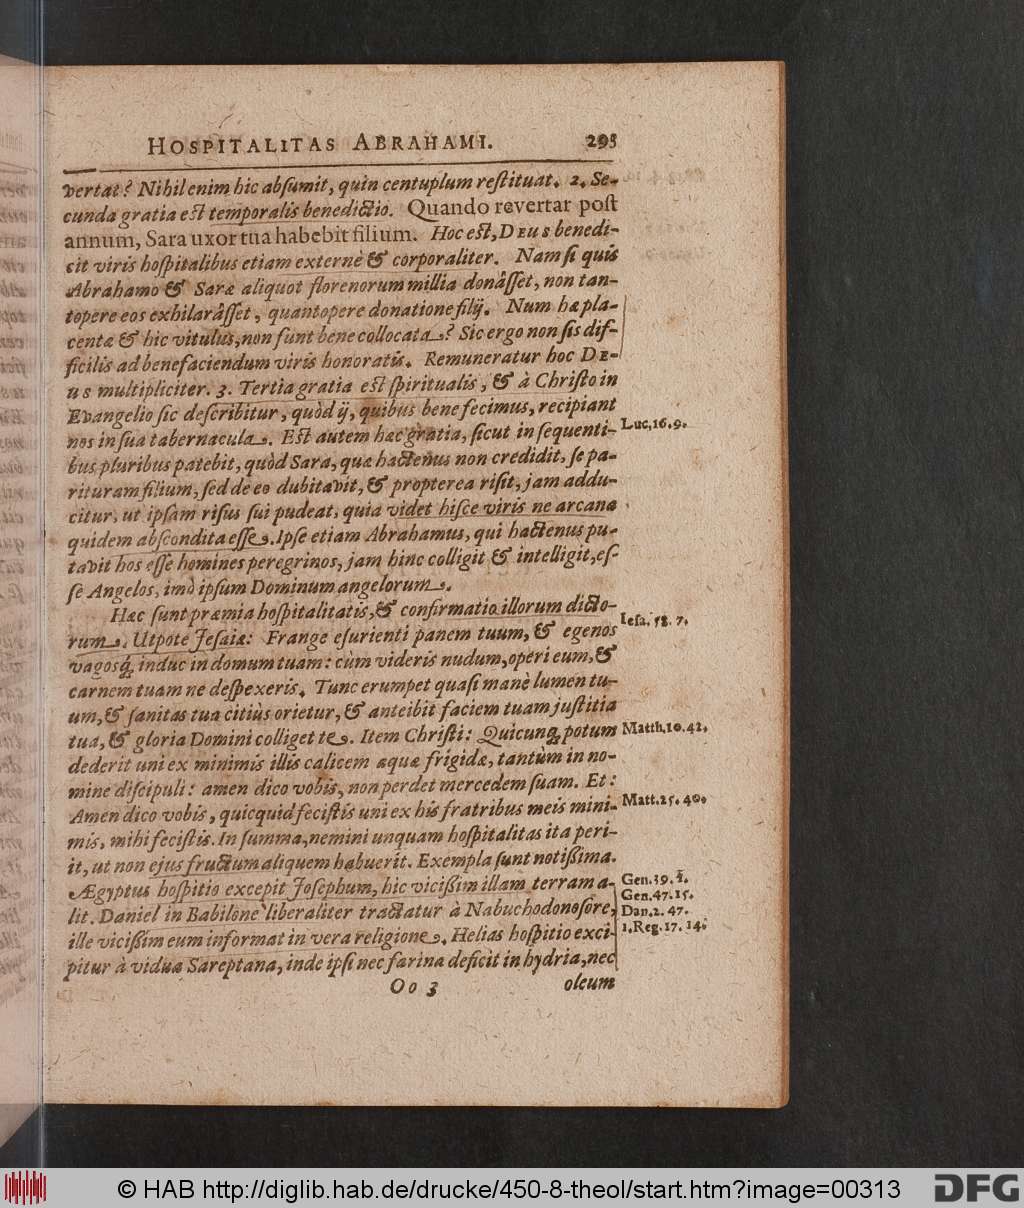 HOSPITALITAS ABRAHAMI. 295
vertat? Nihil enim hic absumit, quin centuplum restituat. 2. Se-
cunda gratia est temporalis benedictio. Quando revertar post
annum, Sara uxor tua habebit filium. Hoc est, DEUS benedi-
cit viris hospitalibus etiam externè & corporaliter. Nam si quis
Abrahamo & Saræ aliquot florenorum millia donâsset, non tan-
topere eos exhilarâsset, quantopere donatione filij. Num hæ pla-
centæ & hic vitulus, non sunt bene collocata? Sic ergo non sis dif-
ficilis ad benefaciendum viris honoratis. Remuneratur hoc DE-
US multipliciter. 3. Tertia gratia est spiritualis, & à Christo in
Evangelio sic describitur, quòd ij, quibus bene fecimus, recipiant
nos in sua tabernacula. Est autem hæc gratia, sicut in sequenti-
Luc, 16. 9.
bus pluribus patebit, quòd Sara, quæ hactenus non credidit, se pa-
rituram filium, sed de eo dubitavit, & propterea risit, jam addu-
citur, ut ipsam risus sui pudeat, quia videt hisce viris ne arcana
quidem abscondita esse. Ipse etiam Abrahamus, qui hactenus pu-
tavit hos esse homines peregrinos, jam hinc colligit & intelligit, es-
se Angelos, imò ipsum Dominum angelorum.
Hæc sunt præmia hospitalitatis, & confirmatio illorum dicto-
rum. Utpote Jesaiæ: Frange esurienti panem tuum, & egenos
Iesa. 58. 7.
vagosq́; induc in domum tuam: cùm videris nudum, operi eum, &
carnem tuam ne despexeris. Tunc erumpet quasi manè lumen tu-
um, & sanitas tua citiùs orietur, & anteibit faciem tuam justitia
tua, & gloria Domini colliget te. Item Christi: Quicunq; potum
Matth. 10. 42.
dederit uni ex minimis illis calicem aquæ frigidæ, tantùm in no-
mine discipuli: amen dico vobis, non perdet mercedem suam. Et:
Amen dico vobis, quicquid fecistis uni ex his fratribus meis mini-
Matt. 25. 40.
mis, mihi fecistis. In summa, nemini unquam hospitalitas ita peri-
it, ut non ejus fructum aliquem habuerit. Exempla sunt notißima.
Ægyptus hospitio excepit Josephum, hic vicißim illam terram a-
Gen. 39. 1.
Gen. 47. 15.
lit. Daniel in Babilone liberaliter tractatur à Nabuchodonosore,
Dan. 2. 47.
ille vicißim eum informat in vera religione. Helias hospitio exci-
1. Reg. 17. 14.
pitur à vidua Sareptana, inde ipsi nec farina deficit in hydria, nec
Oo 3 oleum
© HAB http://diglib.hab.de/drucke/450-8-theol/start.htm?image=00313
DFG